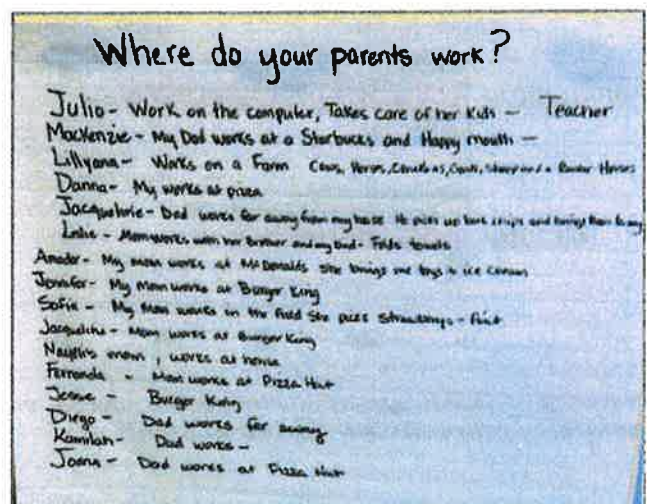 Where do your parents work?
Julio - Work on the computer, Takes care of her kids - Teacher
Mackenzie - My Dad works at a Starbucks and Happy mouth -
Lillyana - Works on a Farm Cows, Horses, and a Horses
Danna - My works at pizza
Dad works far away from my house He picks up and brings them to my
Leslie - Mom works with her Brother and my Dad - Folds towels
Amador - My mom works at McDonalds She brings me toys & ice cream
Jennifer - My Mom works at Burger King
Sofia - My Mom works in the field She picks - Paint
Jacqueline - Mom works at Burger King
mom, works at home
Fernanda - Mom works at Pizza Hut
Jesse - Burger King
Diego - Dad works far away
Kamilah - Dad works -
Joana - Dad works at Pizza Hut